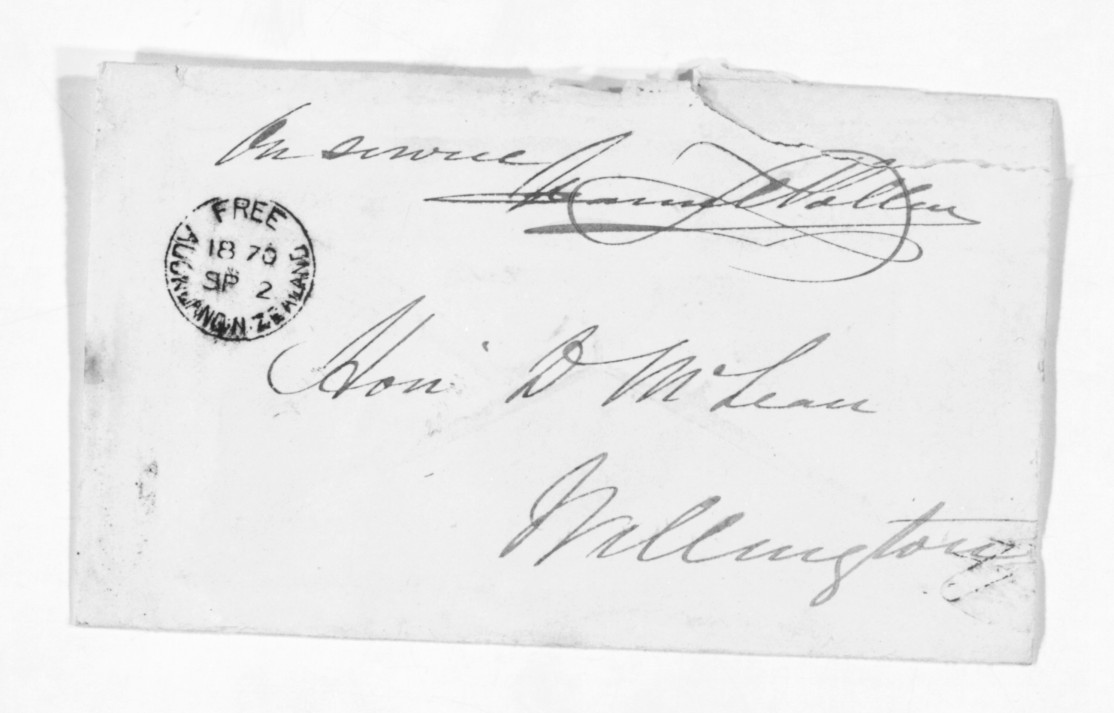 On service
Daniel Pollen
FREE
AUCKLAND N. ZEALAND
18 70
SP 2
Hon. D McLean
Wellington